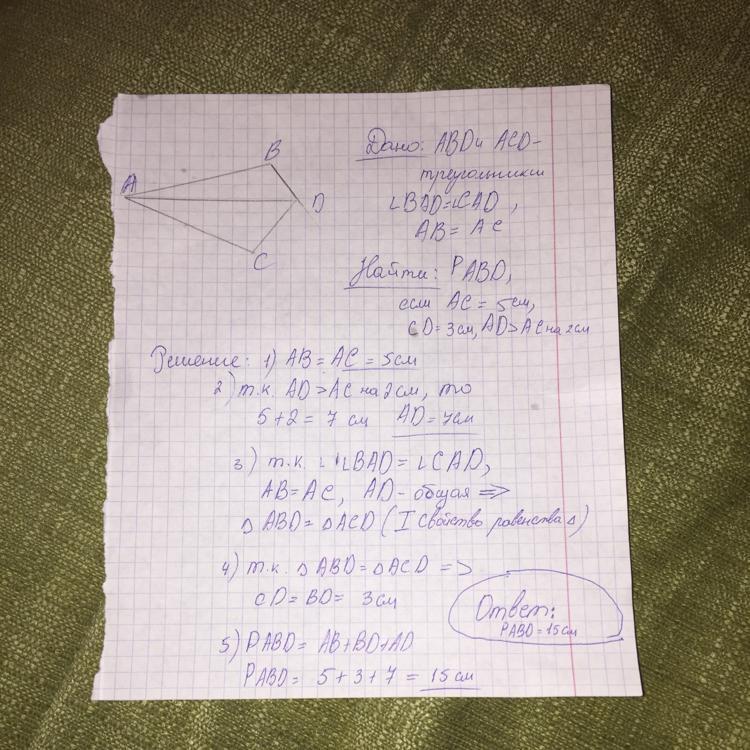 A
B
D
C
Дано: ABD и ACD-
треугольники
∠BAD=∠CAD,
AB= AC
Найти: PABD,
если AC= 5см,
CD=3см, AD>AC на 2см
Решение: 1) AB= AC = 5см
2) т.к. AD>AC на 2см, то
5+2= 7 см AD=7см
3) т.к. ∠BAD= ∠CAD,
AB=AC, AD- общая =>
△ABD=△ACD (I свойство равенства △)
4) т.к. △ABD=△ACD =>
CD=BD= 3см
Ответ:
PABD=15см
5) PABD= AB+BD+AD
PABD= 5+3+7 = 15см